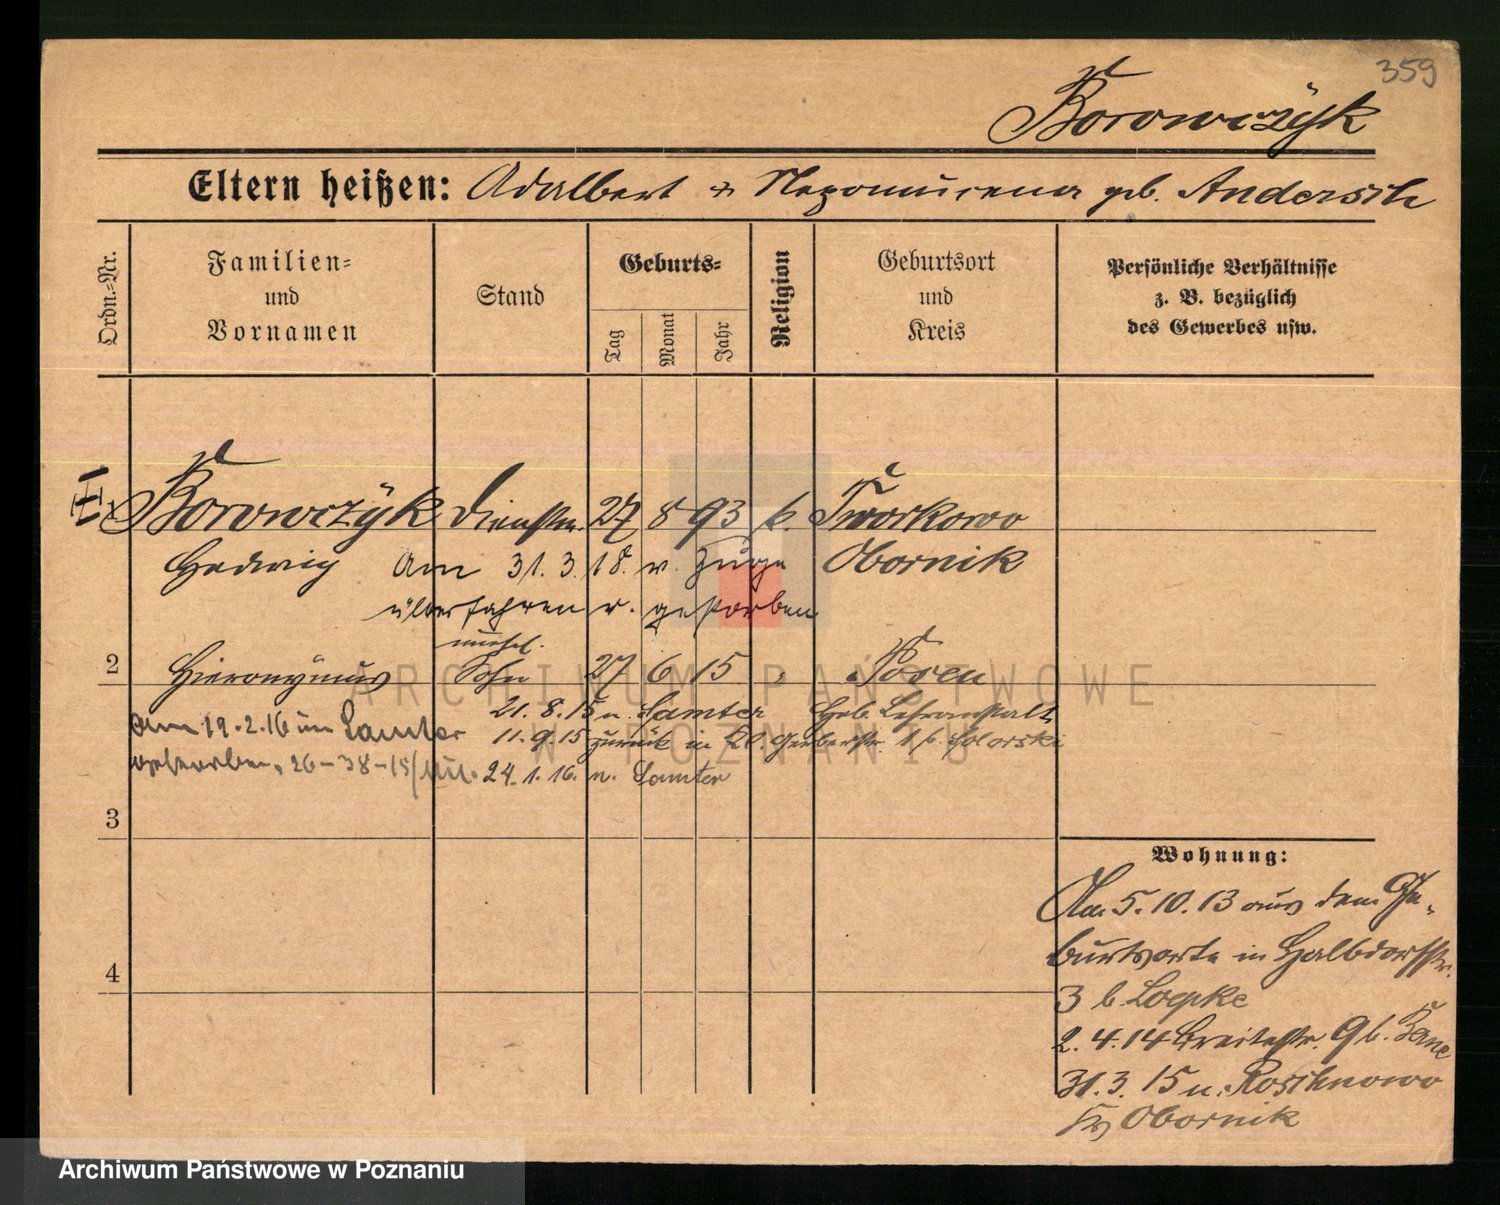 359
Borowczyk
Eltern heißen: Adalbert u. Nepomucena geb. Andersch
Ordn.=Nr.
Familien=
und
Vornamen
Stand
Geburts=
Tag
Monat
Jahr
Religion
Geburtsort
und
Kreis
Persönliche Verhältnisse
z. B. bezüglich
des Gewerbes usw.
Borowczyk Dienstm. 27 8 93 k. Tworkowo
Hedwig Am 31. 3. 18. v. Zuge Obornik
überfahren u. gestorben
unehel.
2 Hieronymus Sohn 27 6 15 " Posen
21. 8. 15 n. Samter Heb. Lehranstalt
Am 19.2.16 in Samter 11.9.15 zurück in Gerberstr
gestorben, 26-38-15/ 24.1.16. n. Samter
3
4
Wohnung:
Am 5. 10. 13 aus dem Ge-
burtsorte in Halbdorfstr.
3 b. Loepke
2. 4. 14 Breitestr. 9 b.
31. 3. 15 n. Roschnowo
Kr. Obornik
ARCHIWUM PAŃSTWOWE
W POZNANIU
Archiwum Państwowe w Poznaniu